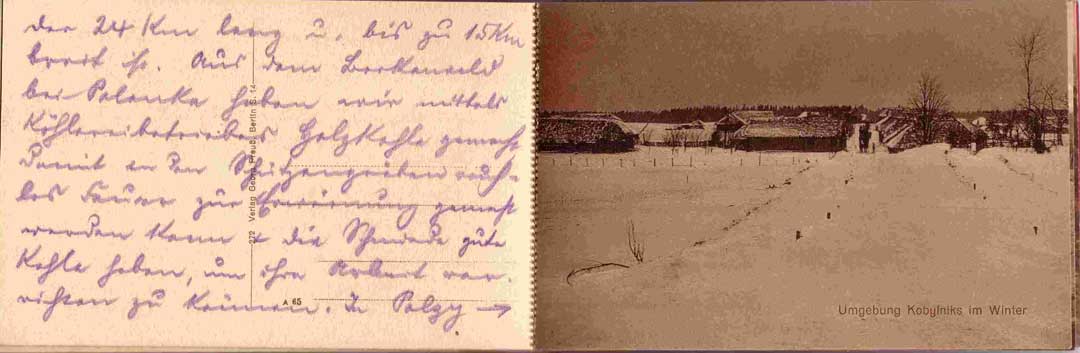 der 24 Km lang u. bis zu 15 Km
breit ist. Aus dem Birkenwald
bei Polonka haben wir mittels
Köhlereibetriebes Holzkohle gemacht
damit in den Schützengräben rauch-
loses Feuer zur Erwärmung gemacht
werden kann & die Schmiede gute
Kohle haben, um ihre Arbeit ver-
richten zu können. In Polzy →
272 Verlag Georg Preuß, Berlin S. 14
A 65
Umgebung Kobylniks im Winter